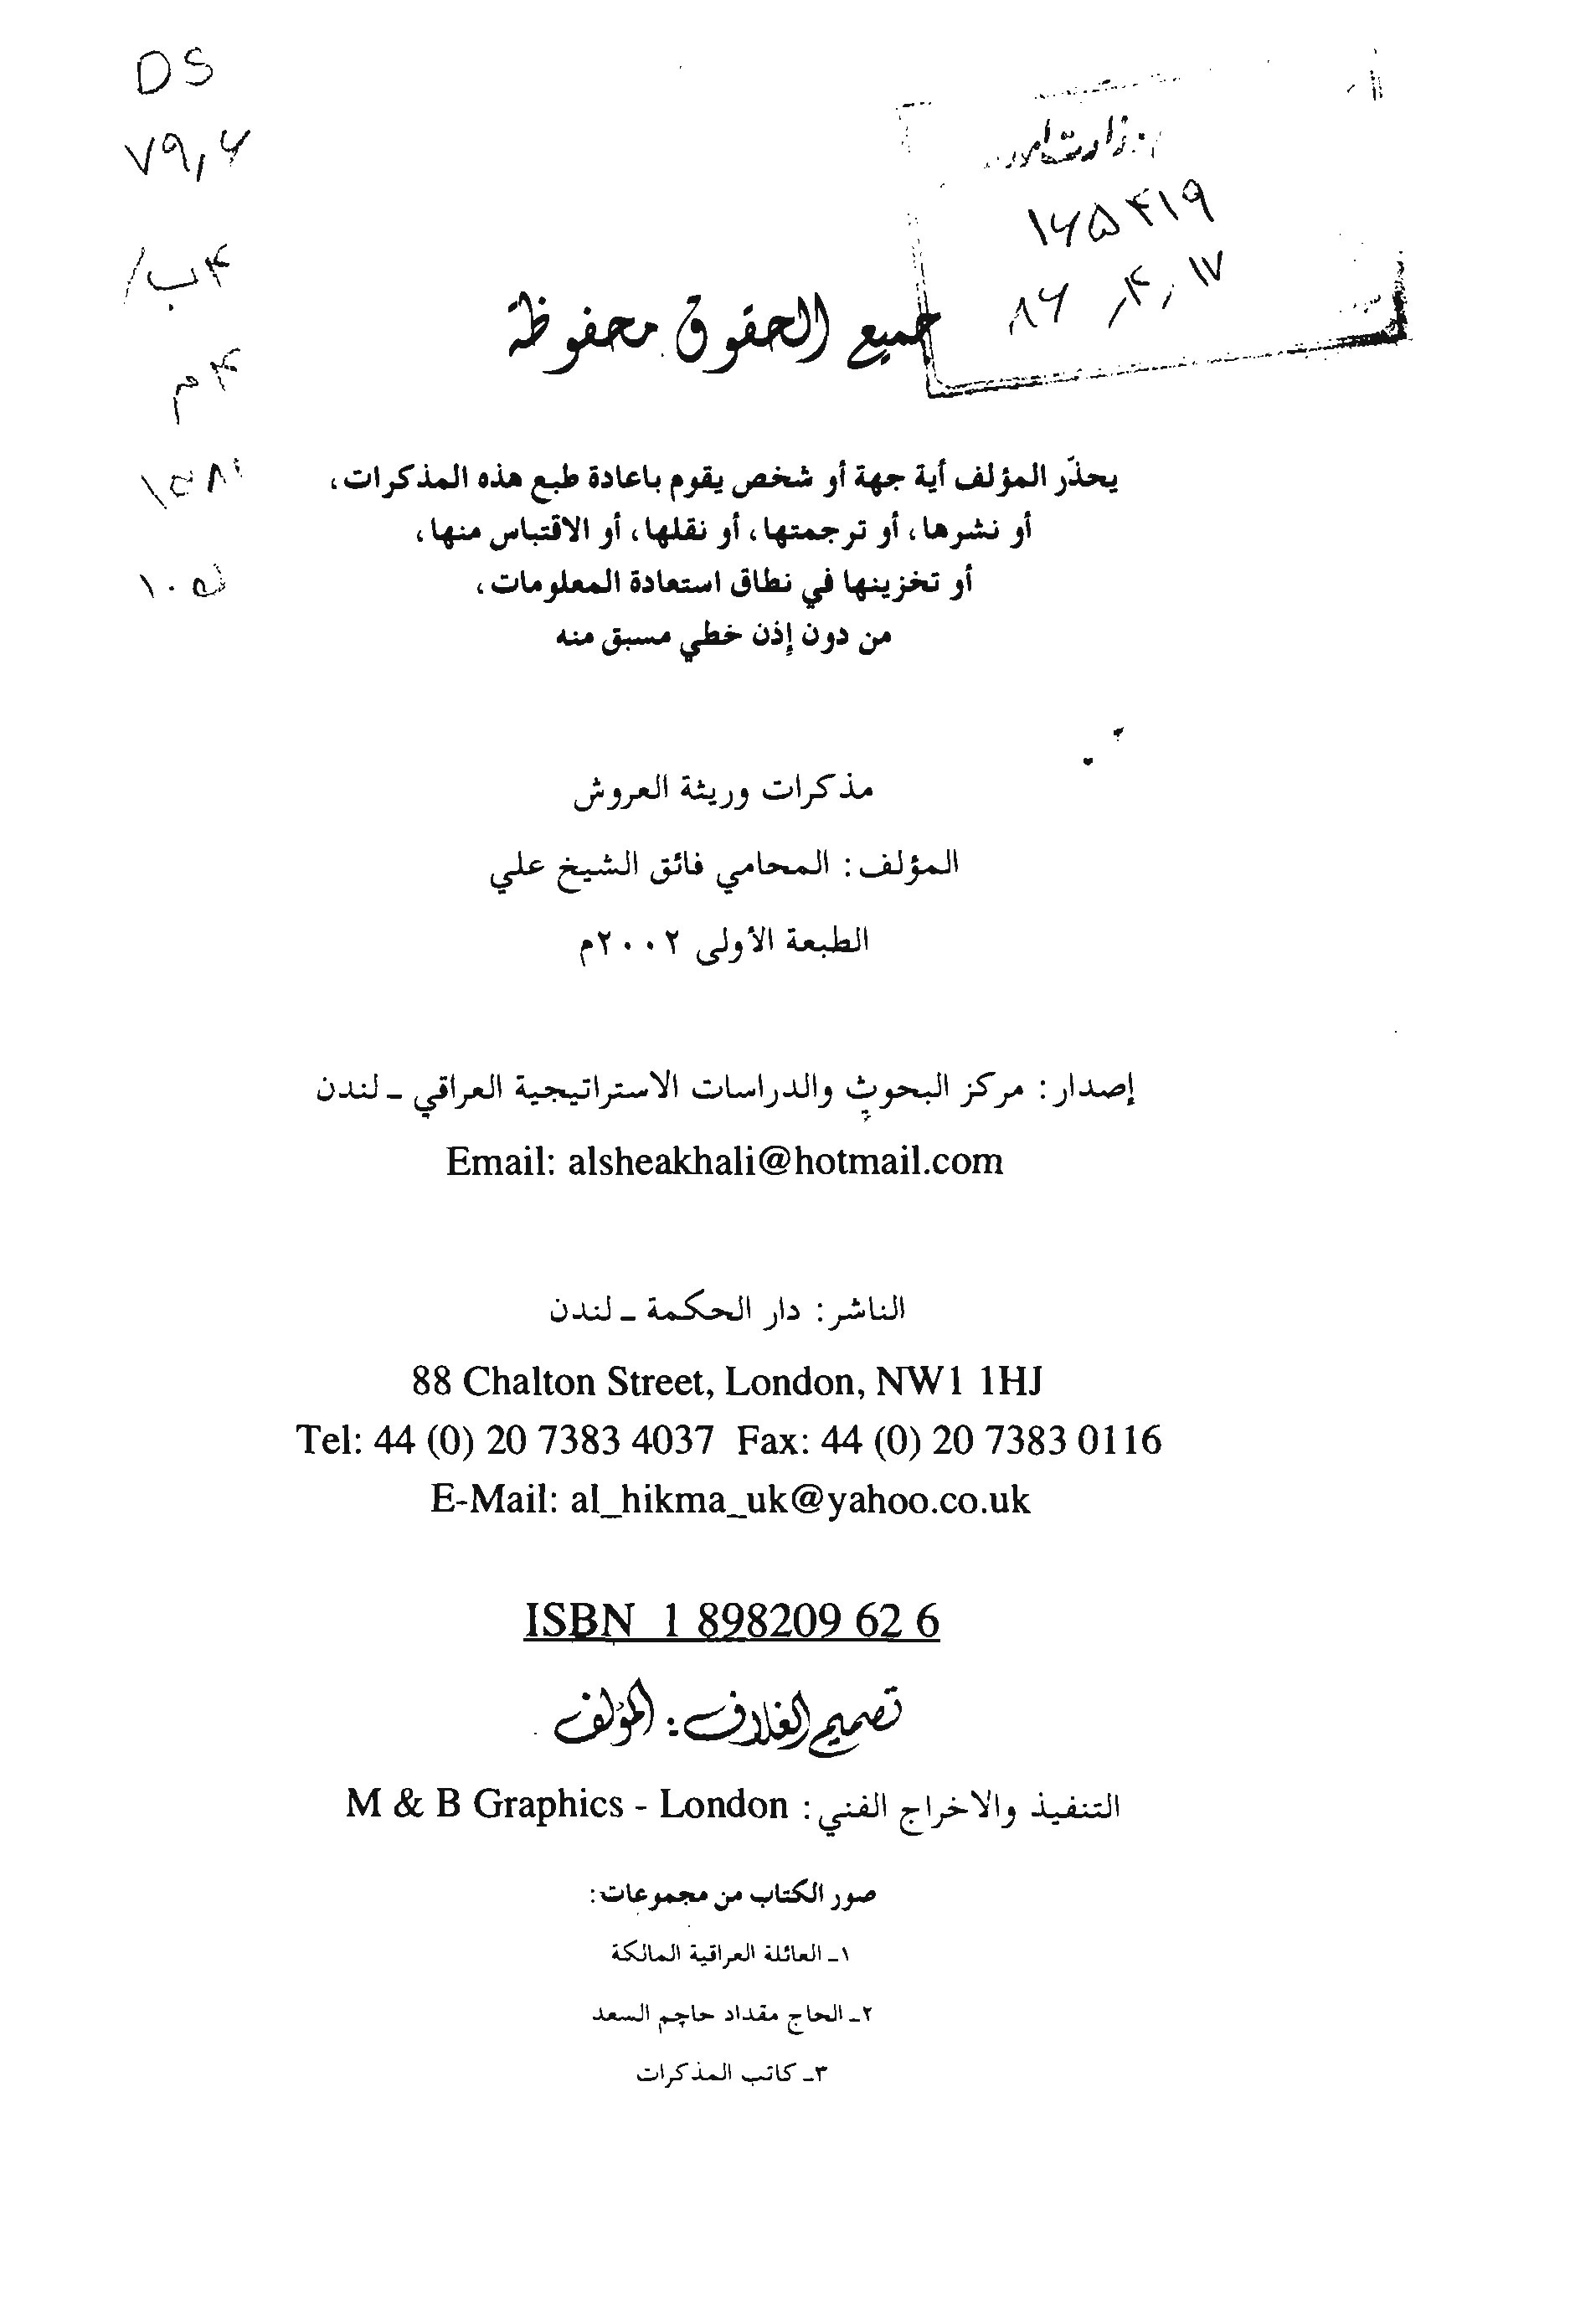 DS
۷۹٫۶
/ب۴
م۴
۱۶۵۴۱۹
۸۶ ٫۴٫ ۱۷
جميع الحقوق محفوظة
يحذّر المؤلف أية جهة أو شخص يقوم باعادة طبع هذه المذكرات،
أو نشرها، أو ترجمتها، أو نقلها، أو الاقتباس منها،
أو تخزينها في نطاق استعادة المعلومات،
من دون إذن خطي مسبق منه
مذكرات وريثة العروش
المؤلف: المحامي فائق الشيخ علي
الطبعة الأولى ٢٠٠٢م
إصدار: مركز البحوث والدراسات الاستراتيجية العراقي ـ لندن
Email: alsheakhali@hotmail.com
الناشر: دار الحكمة ـ لندن
88 Chalton Street, London, NW1 1HJ
Tel: 44 (0) 20 7383 4037 Fax: 44 (0) 20 7383 0116
E-Mail: al_hikma_uk@yahoo.co.uk
ISBN 1 898209 62 6
تصميم الغلاف: المؤلف
التنفيذ والاخراج الفني: M & B Graphics - London
صور الكتاب من مجموعات:
١ـ العائلة العراقية المالكة
٢ـ الحاج مقداد حاچم السعد
٣ـ كاتب المذكرات